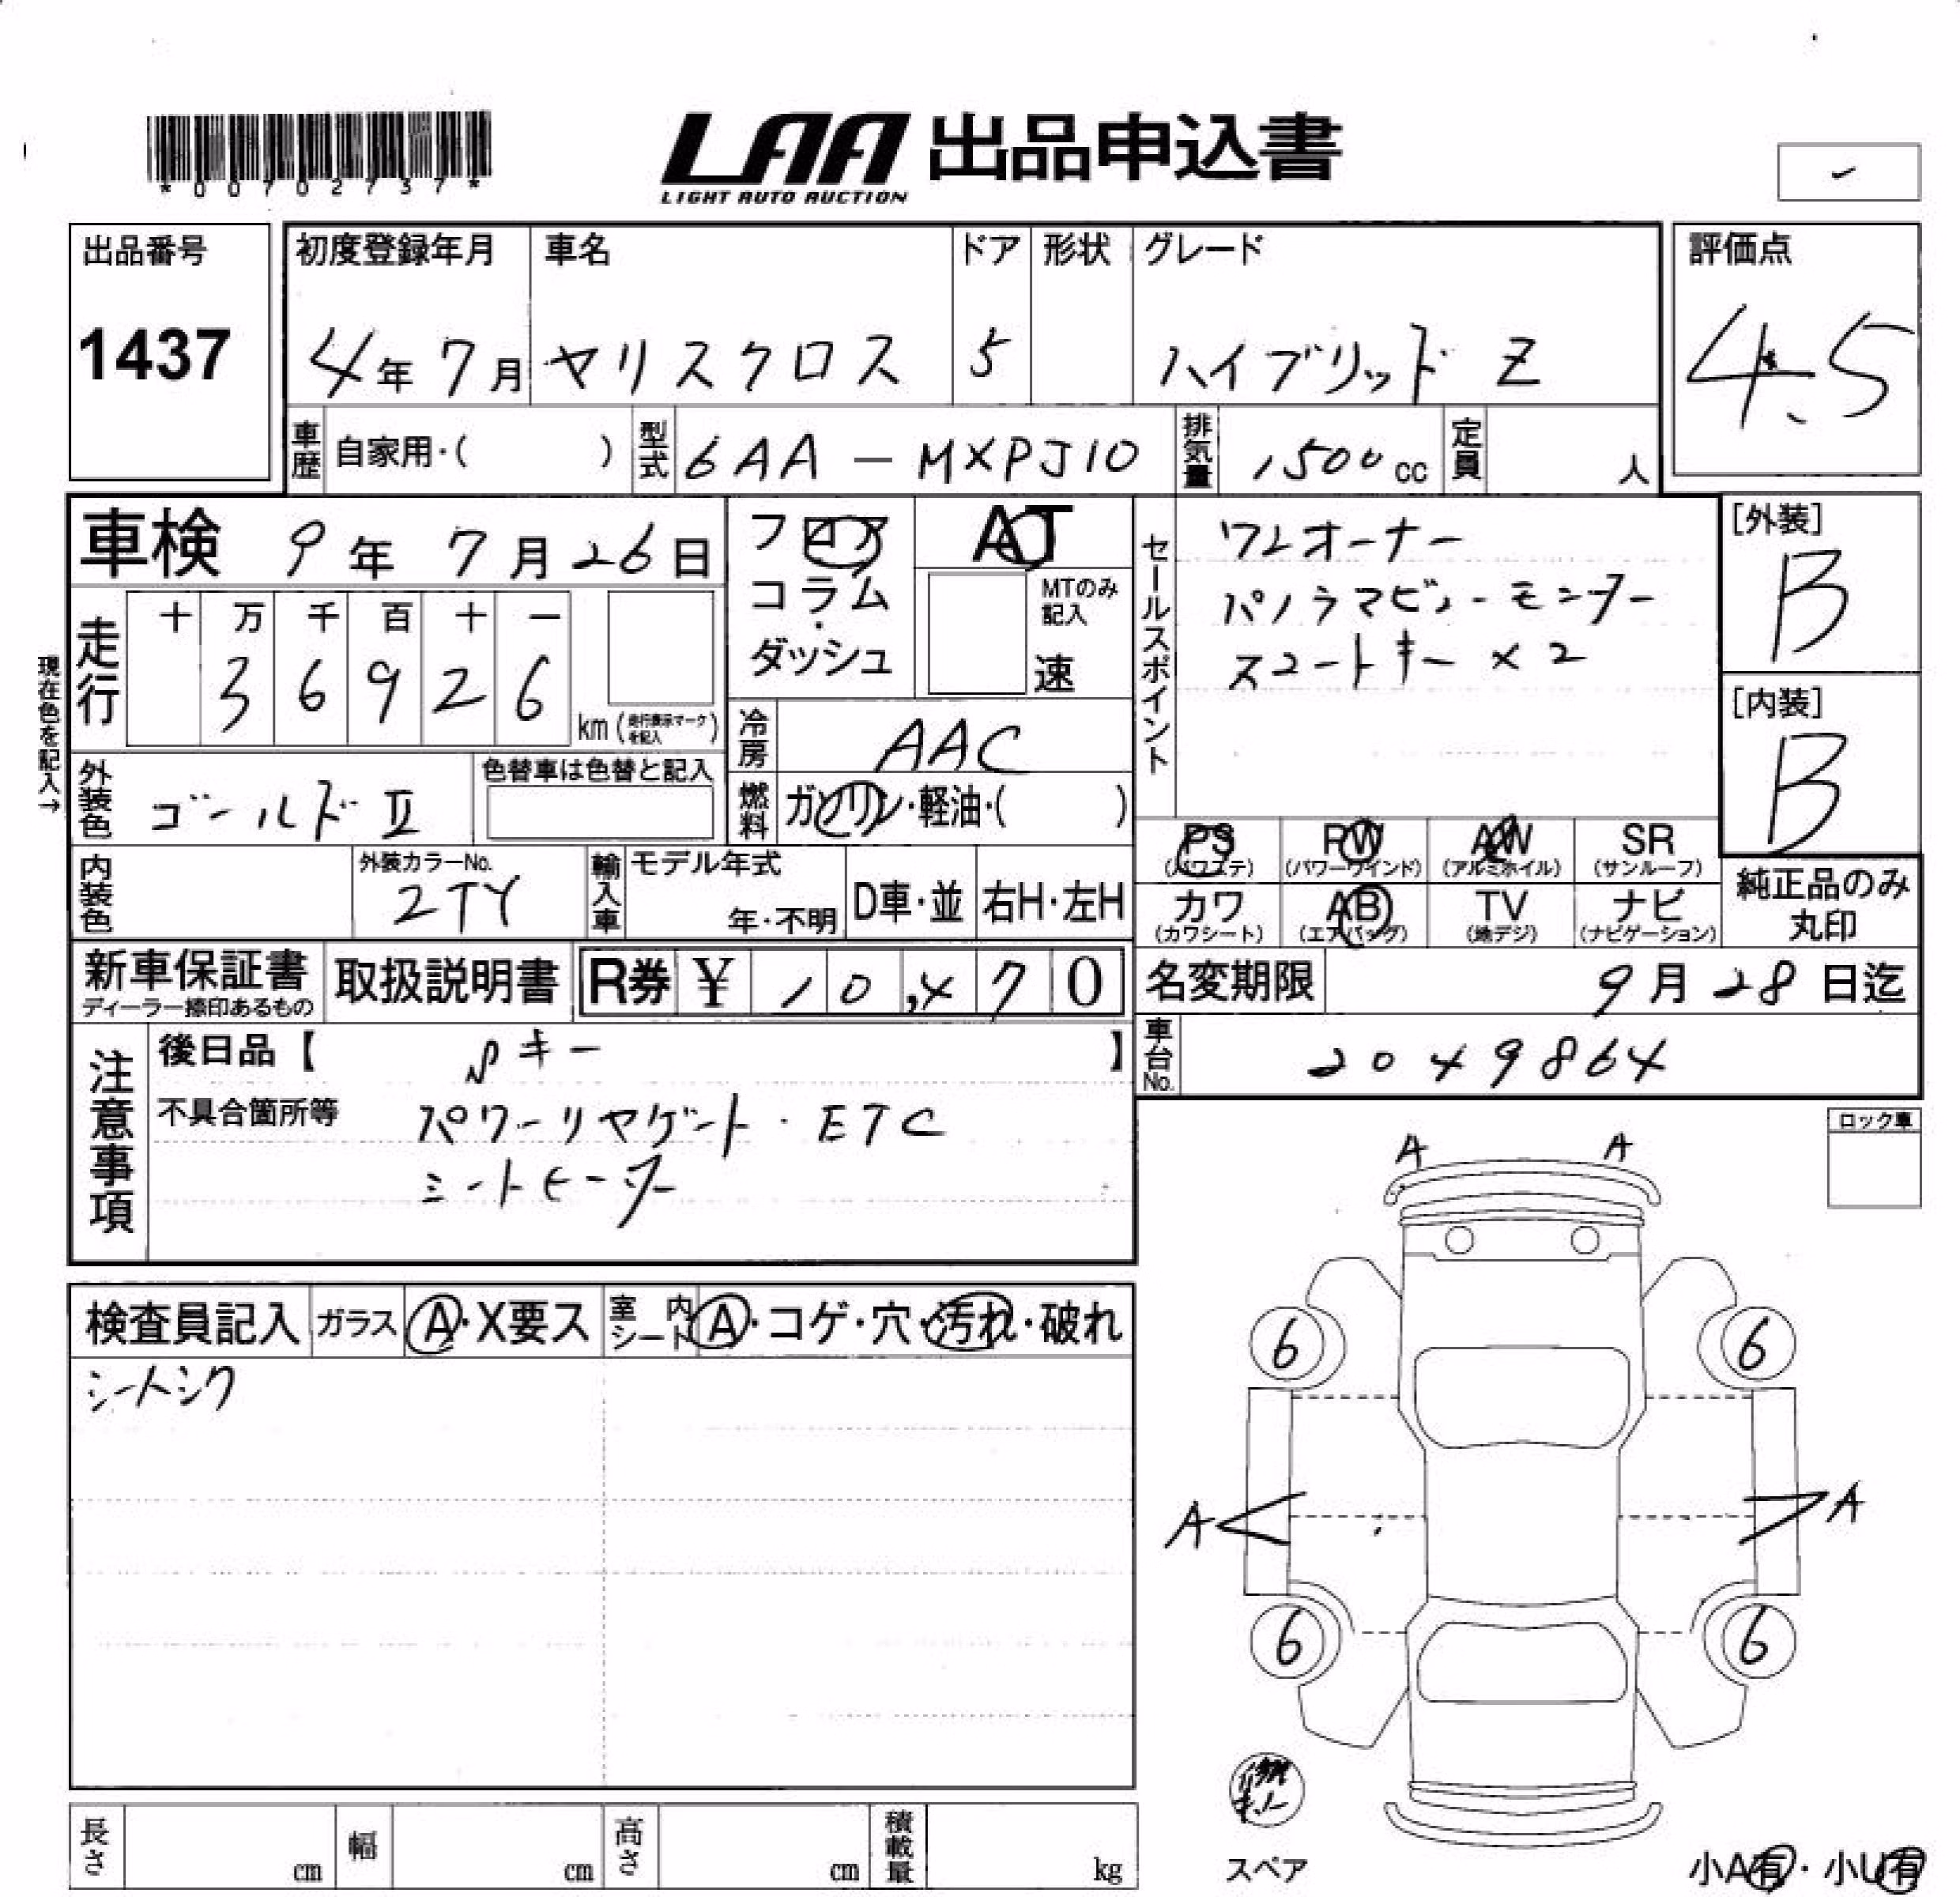 *00702737*
LAA 出品申込書
LIGHT AUTO AUCTION
出品番号
1437
初度登録年月
4年7月
車名
ヤリスクロス
ドア
5
形状
グレード
ハイブリッド Z
評価点
4.5
車歴
自家用・( )
型式
6AA-MXPJ10
排気量
1500cc
定員
人
車検 9年7月26日
フロア
コラム
ダッシュ
AT
MTのみ記入
速
セールスポイント
ワンオーナー
パノラマビューモニター
スマートキー×2
[外装]
B
[内装]
B
現在色を記入→
走行
十 万 千 百 十 一
3 6 9 2 6
km (走行表示マークを記入)
冷房
AAC
外装色
ゴールドⅡ
色替車は色替と記入
燃料
ガソリン・軽油・( )
PS (パワステ)
PW (パワーウインド)
AW (アルミホイル)
SR (サンルーフ)
カワ (カワシート)
AB (エアバッグ)
TV (地デジ)
ナビ (ナビゲーション)
純正品のみ丸印
内装色
外装カラーNo.
2TY
輸入車
モデル年式
年・不明
D車・並
右H・左H
新車保証書
ディーラー捺印あるもの
取扱説明書
R券 ¥ 10,470
名変期限
9月28日迄
車台No.
2049864
注意事項
後日品【 キー 】
不具合箇所等
パワーリヤゲート・ETC
シートヒーター
ロック車
A A
検査員記入
ガラス
A・X要ス
室内シート
A・コゲ・穴・汚れ・破れ
シートシワ
6 6
A A
6 6
スペア
小A有・小U有
長さ
cm
幅
cm
高さ
cm
積載量
kg